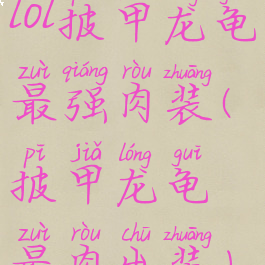 lol披甲龙龟
zuì qiáng ròu zhuāng
最强肉装(
pī jiǎ lóng guī
披甲龙龟
zuì ròu chū zhuāng
最肉出装)